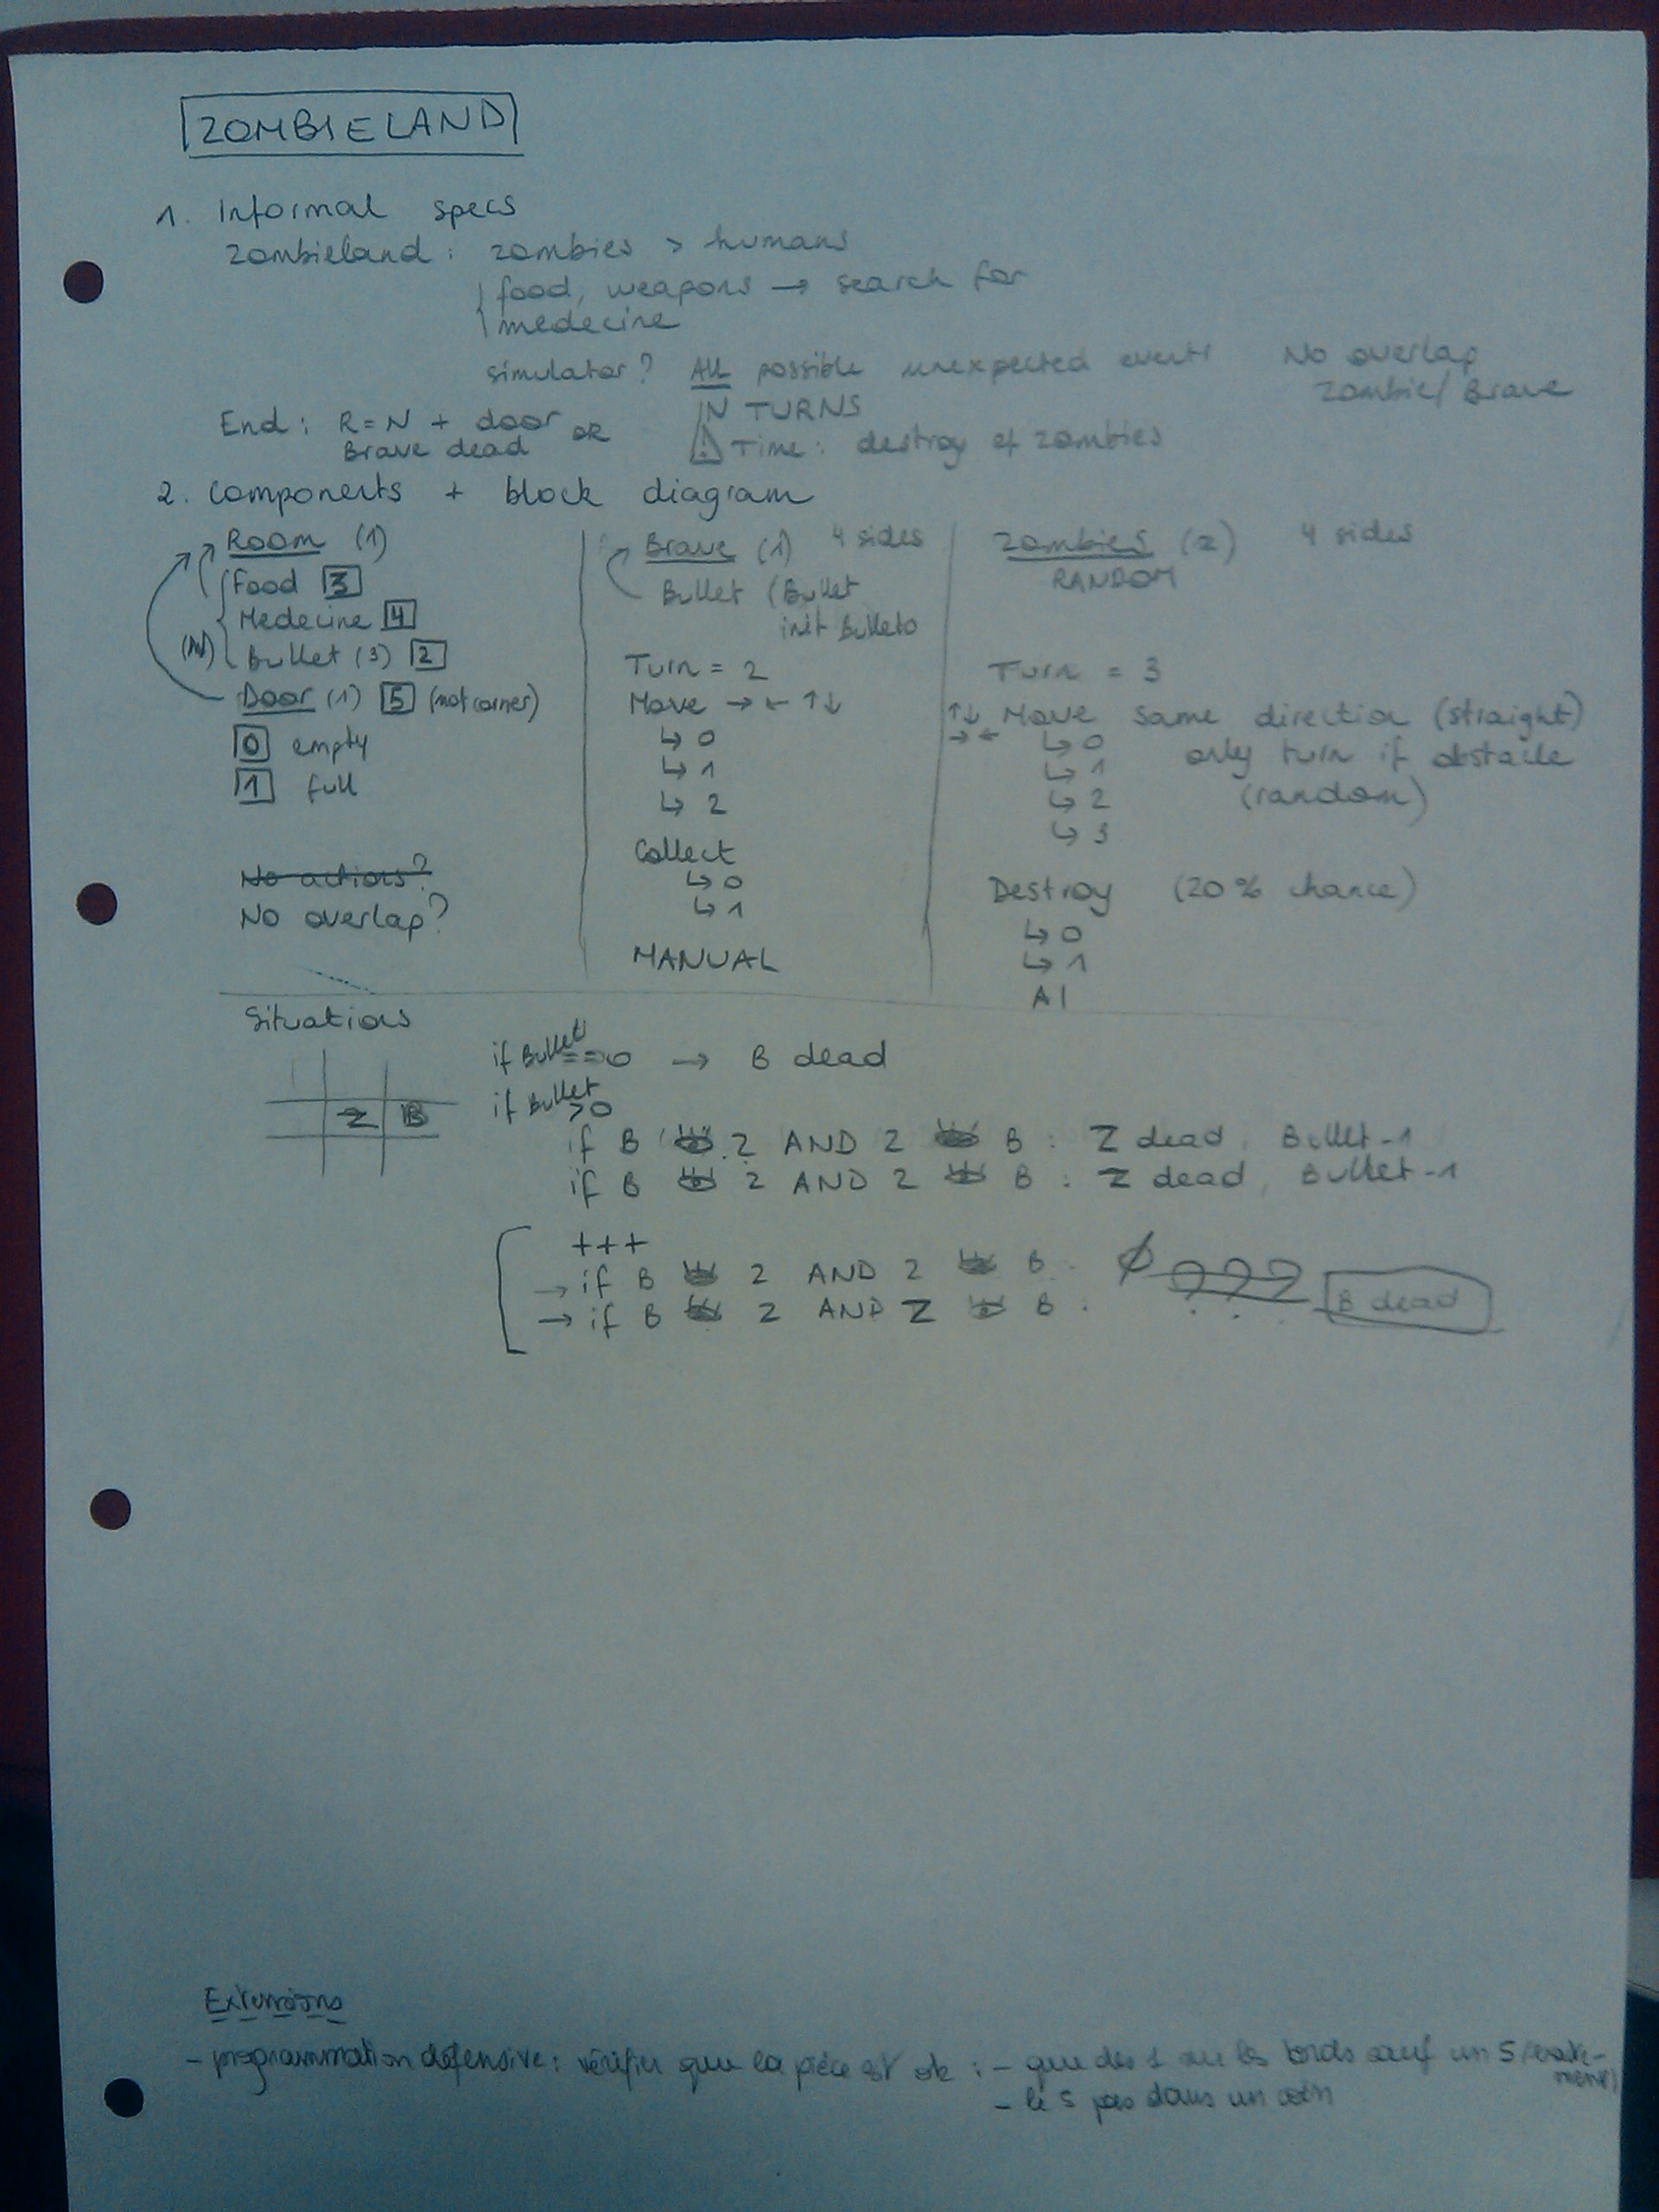 ZOMBIELAND
1. Informal specs
Zombieland : zombies > humans
food, weapons → search for
medecine
simulator? ALL possible unexpected events
No overlap
Zombie/Brave
End : R=N + door OR
Brave dead
N TURNS
⚠ Time : destroy of zombies
2. components + block diagram
Room (1)
Food 3
Medecine 4
(N)
Bullet (3) 2
Door (1) 5 (not corner)
0 empty
1 full
No actions?
No overlap?
Brave (1) 4 sides
Bullet (Bullet
init Bullet0
Turn = 2
Move → ← ↑↓
↳ 0
↳ 1
↳ 2
Collect
↳ 0
↳ 1
MANUAL
Zombies (z) 4 sides
RANDOM
Turn = 3
↑↓ Move same direction (straight)
→← ↳ 0 only turn if obstacle
↳ 1
↳ 2 (random)
↳ 3
Destroy (20% chance)
↳ 0
↳ 1
AI
Situations
Z B
if Bullet ==0 → B dead
if Bullet >0
if B Z AND Z B : Z dead, Bullet-1
if B Z AND Z B : Z dead, Bullet-1
+++
→ if B Z AND Z B : ∅ ???
→ if B Z AND Z B : B dead
Extensions
- programmation défensive : vérifier que la pièce est ok : - que des 1 sur les bords sauf un 5
- le 5 pas dans un coin